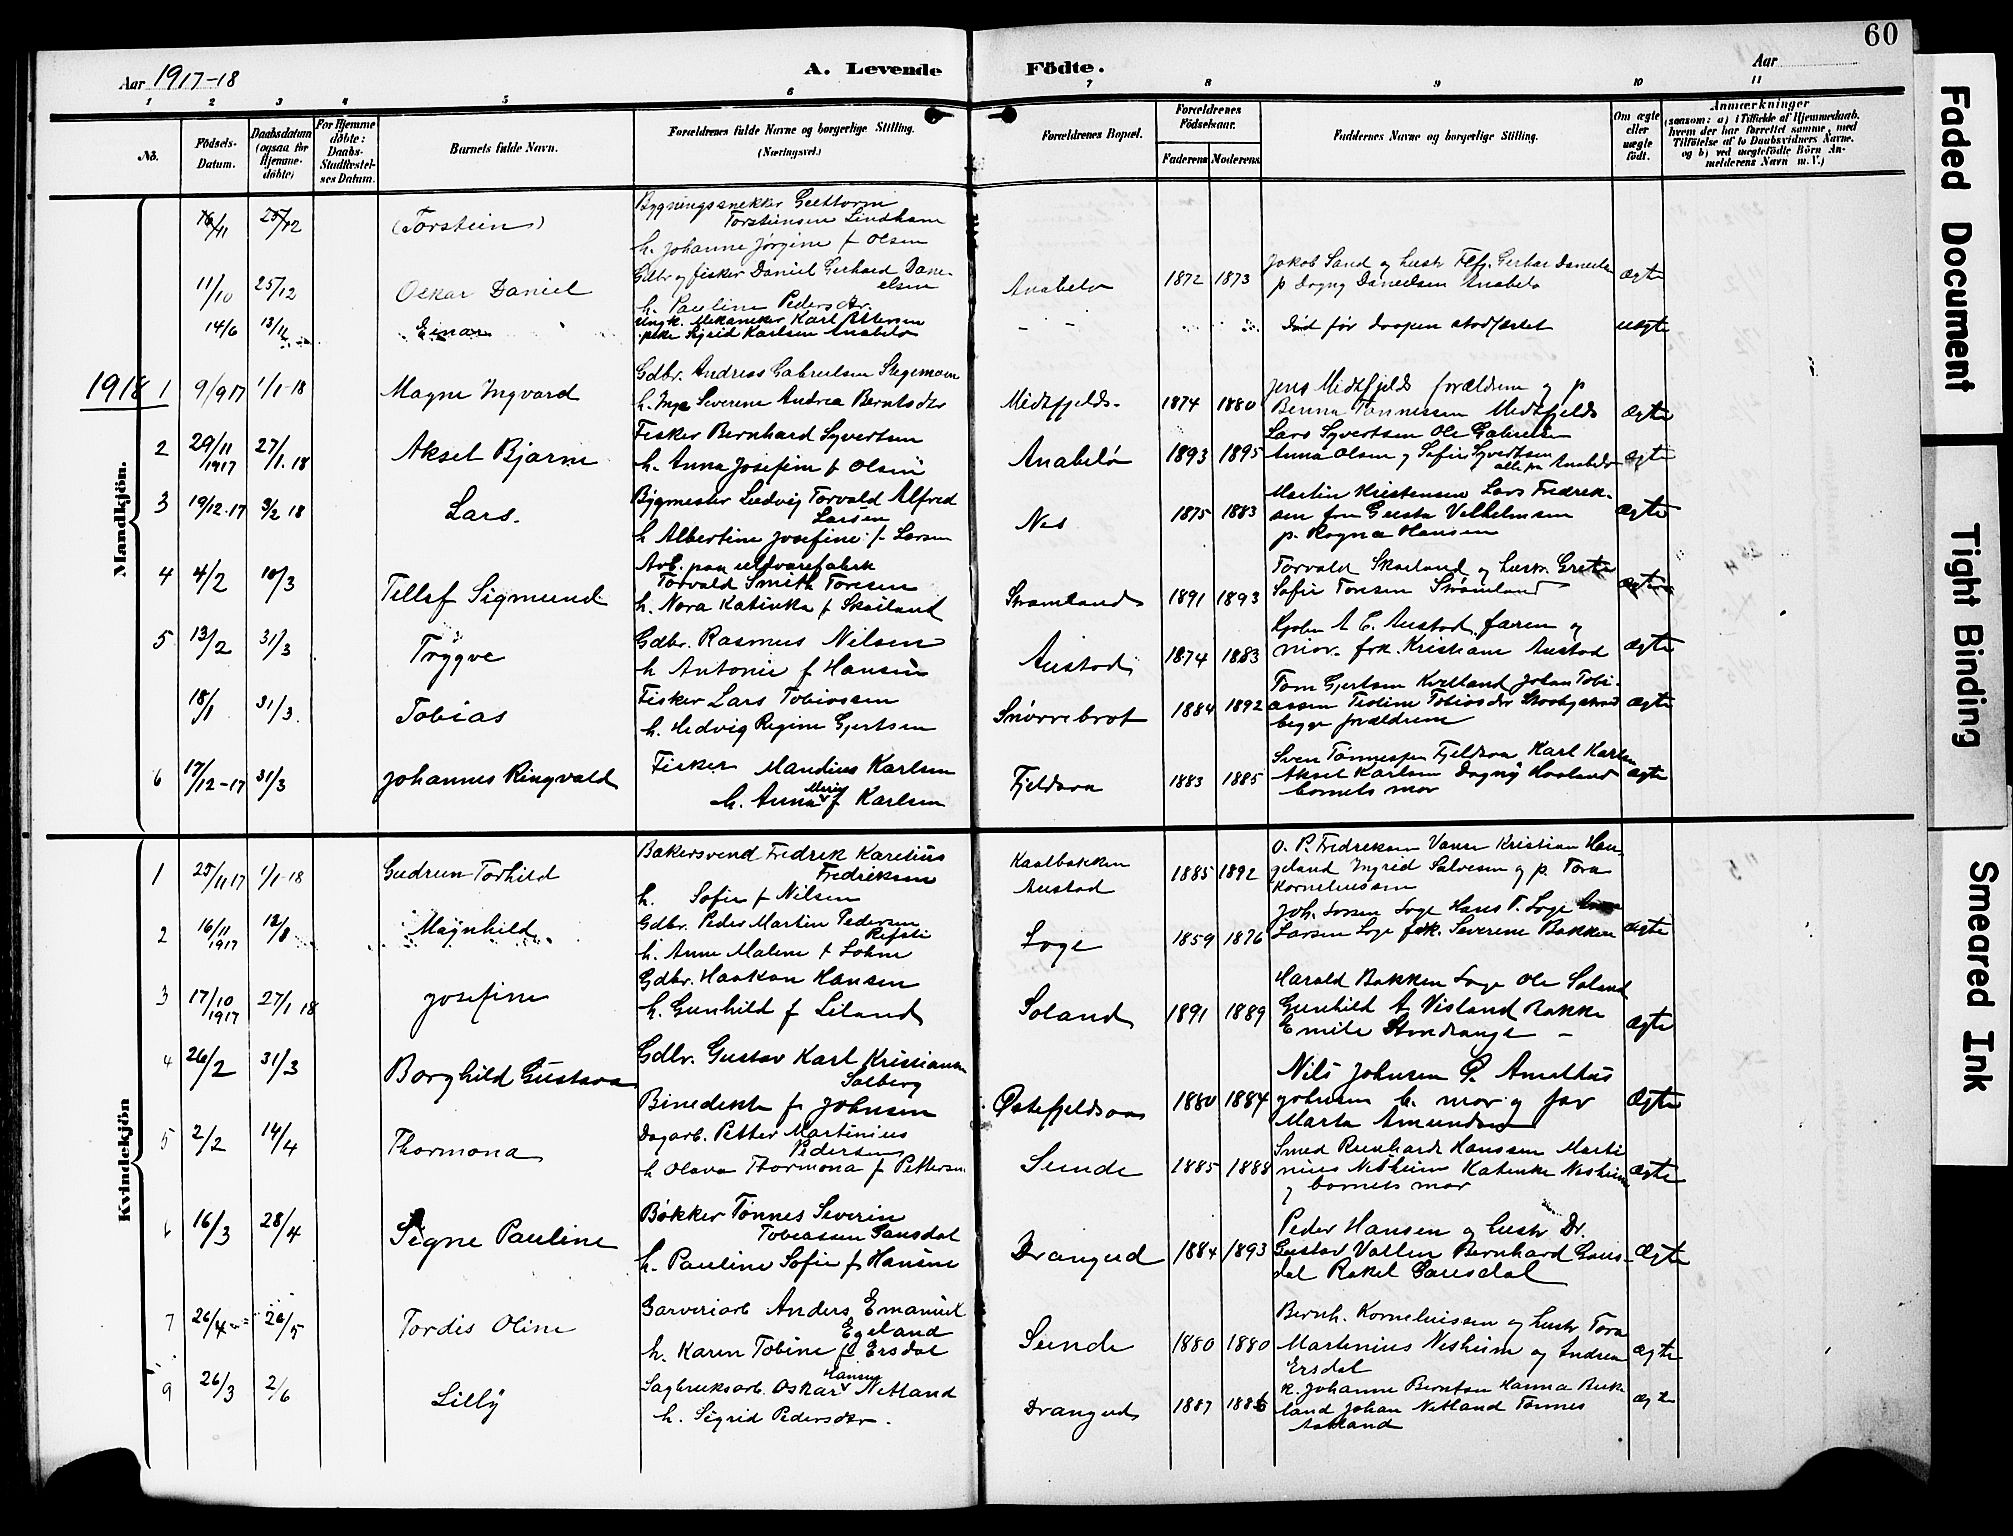 60
Aar 1917-18
A. Levende Födte.
Aar
1 2 3 4 5 6 7 8 9 10 11
No.
Födsels-Datum.
Daabsdatum (ogsaa for Hjemme-döbte)
For Hjemme döbte: Daabs-Stadfæstel-ses Datum.
Barnets fulde Navn.
Forældrenes fulde Navne og borgerlige Stilling.
(Næringsvei.)
Forældrenes Bopæl.
Forældrenes Födselsaar.
Faderens Moderens
Faddernes Navne og borgerlige Stilling.
Om ægte eller uægte födt.
Anmærkninger
(saasom: a) i Tilfælde af Hjemmedaab.
hvem der har forrettet samme, med
Tilföielse af to Daabsvidners Navne.
og b) ved uægtefödte Börn An-
melderens Navn m. V.)
Mandkjön.
25/12 (Torstein) Bygningssnekker
Torstensen Lindham
h. Johanne Jørgine f Olsen
11/10 25/12 Oskar Daniel Gdbr og fisker Daniel Gerhard Dani-
elsen
h. Pauline Pedersdtr Anabelø 1872 1873 Jakob Sand og hustr
p Dagny Danielsen Anabelø ægte
14/6 Einar Ungk. Mekaniker Karl Attersen
pike Sigrid Karlsen Anabelø - - Død før daapen stadfæstet uægte
1918 1 9/9 17 1/1-18 Magne Ingvard Gdbr. Andreas Gabrielsen Stegemoen
h. Inga Severine Andrea Berntsdtr Midtfjelds- 1874 1880 Jens Midtfjelds forældrene og p
Benna Tønnessen Midtfjelds ægte
2 29/11 1917 27/1. 18 Aksel Bjarne Fisker Bernhard Syvertsen
h. Anna Josefine f Olsen Anabelø 1893 1895 Lars Syvertsen Ole Gabrielsen
Anna Olsen og Sofie Syvertsen
alle fra Anabelø ægte
3 19/12-17 3/2 18 Lars. Bygmester Ludvig Torvald Alfred
Larsen
h Albertine Josefine f Larsen Nes 1875 1883 Martin Kristensen Lars Fredrik-
sen fru Gusta Velhelmsen
p. Ragna Hansen ægte
4 4/2 10/3 Tellef Sigmund Arb. paa uldvarefabrik
Torvald Smith Toresen
h. Nora Katinka f Skailand Strømland 1891 1893 Torvald Skailand og hustr. Grete
Sofie Toresen Strømland ægte
5 13/2 31/3 Trygve Gdbr. Rasmus Nilsen
h Antonie f Hansen Austad 1874 1883 Kjøbm A C. Austad faren og
mor. frk. Kristiane Austad ægte
18/1 31/3 Tobias Fisker Lars Tobiassen
h. Hedvig Regine Gjertsen Snørrebrot 1884 1892 Tom Gjertsen Kvelland Johan Tobi-
assen Tioline Tobiasdtr
begge forældrene ægte
6 17/12-17 31/3 Johannes Ringvald Fisker Mandius Karlsen
h. Anna Marie f Karlsen Fjeldsaa 1883 1885 Sven Tønnessen Fjeldsaa Karl Karlsen
Aksel Karlsen Dagny Haaland
barnets mor ægte
Kvindekjön
1 25/11 17 1/1-18 Gudrun Torhild Bakersvend Fredrik Karelius
Fredriksen
h. Sofie f Nilsen Kaalbakken
Austad 1885 1892 O. P. Fredriksen Vanse Kristian Hau-
geland Ingrid Salvesen og p. Tora
Korneliussen
2 16/11 1917 Magnhild Gdbr. Peder Martin Pedersen
Refsti
h. Anne Malene f Lohne Loge 1859 1876 Joh. Larsen Loge Hans T. Loge
Larsen Loge frk. Severine Bakken ægte
3 17/10 1917 27/1 18 Josefine Gdbr. Haakon Hansen
h. Gunhild f Liland Soland 1891 1889 Harald Bakken Loge Ole Soland
Gunhild A Visland Bakke
Emilie Stendrange - ægte
4 26/2 31/3 Borghild Gustava Gdbr. Gustav Karl Kristiansen
Salberg
Binedikte f Johnsen Østefjeldsaa 1880 1884 Nils Johnsen P. Amathus
Johnsen b. mor og far
Marta Amundsen ægte
5 2/2 14/4 Thormona Dagarb. Petter Martinius
Pedersen
h Olava Thormona f Pettersen Sunde 1885 1888 Smed Reinhardt Hanssen Marti
nius Nesheim Katinka Nesheim
og barnets mor ægte
6 16/3 28/4 Signe Pauline Bøkker Tønnes Severin
Tobiassen Gausdal
h. Pauline Sofie f Hansen Drangeid 1884 1893 Peder Hansen og hustr Dr.
Gustav Vatlen Bernhard Gaus-
dal Rakel Gausdal ægte
7 26/4 26/5 Tordis Oline Garveriarb Anders Emanuel
Egeland
h. Karen Tobine f Ersdal Sunde 1880 1880 Bernh. Korneliussen og hustr Tora
Martinius Nesheim og Andrea
Ersdal ægte
9 26/3 2/6 Lilly Sagbruksarb. Oskar Hansen Netland
h. Sigrid Pedersdtr. Drangeid 1887 1886 k. Johanne Berntsen Hanna Birke
land Johan Netland Tønnes
Aasland ægte
Faded Document
Tight Binding
Smeared Ink